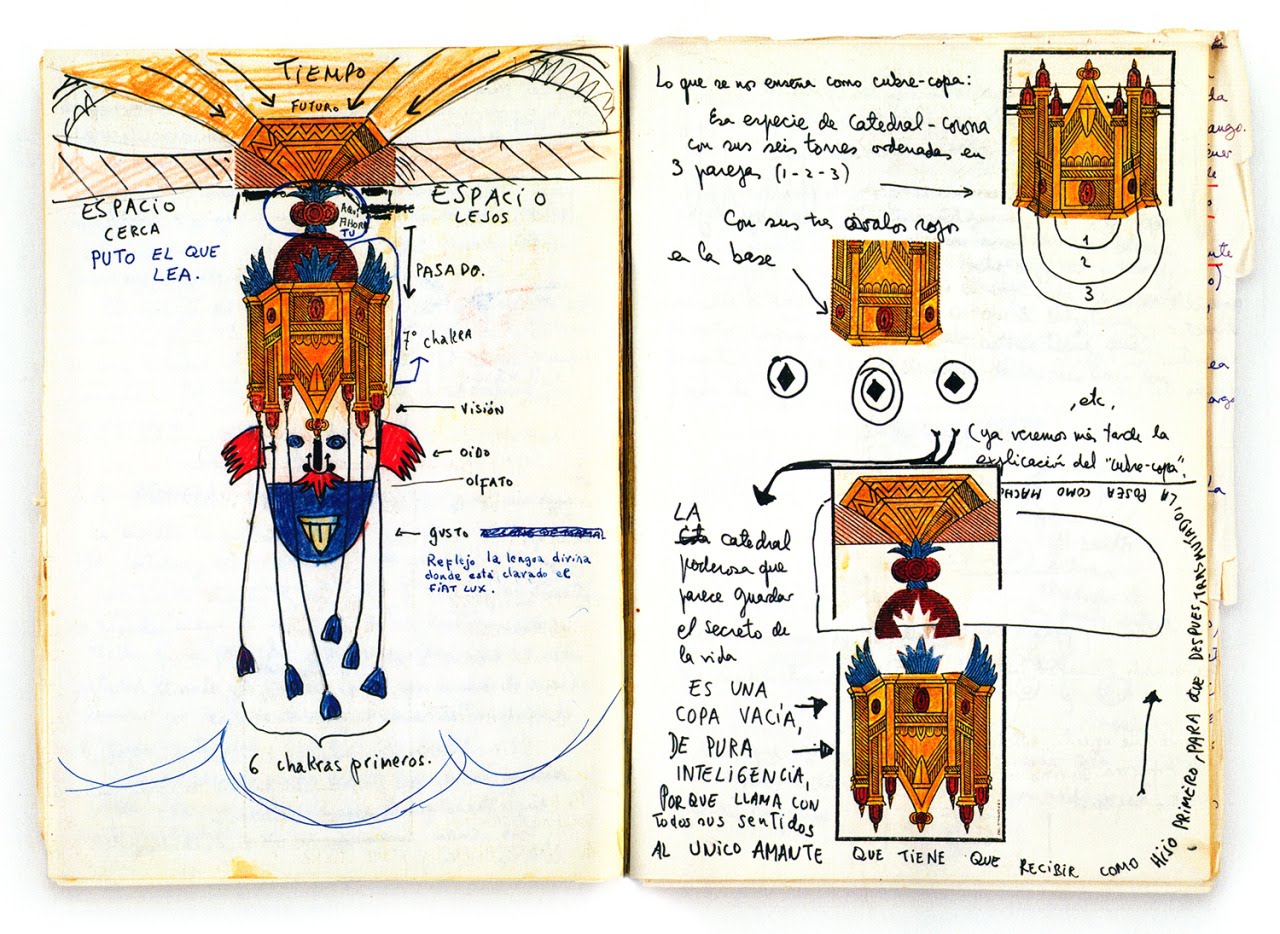 TIEMPO
FUTURO
ESPACIO
CERCA
PUTO EL QUE
LEA.
AQUÍ
AHORA
TU
ESPACIO
LEJOS
PASADO.
7º chakra
VISIÓN
OIDO
OLFATO
GUSTO
Reflejo la lengua divina
donde está clavado el
FIAT LUX.
6 chakras primeros.
Lo que se nos enseña como cubre-copa:
Esa especie de Catedral-corona
con sus seis torres ordenadas en
3 parejas (1-2-3)
1
2
3
Con sus tres óvalos rojos
en la base
, etc,
(ya veremos más tarde la
explicación del "cubre-copa".
LA
catedral
poderosa que
parece guardar
el secreto de
la vida
ES UNA
COPA VACÍA,
DE PURA
INTELIGENCIA,
PORQUE LLAMA CON
TODOS SUS SENTIDOS
AL UNICO AMANTE QUE TIENE QUE RECIBIR COMO HIJO PRIMERO, PARA QUE DESPUES, TRANSMUTADO, LA POSEA COMO MACHO